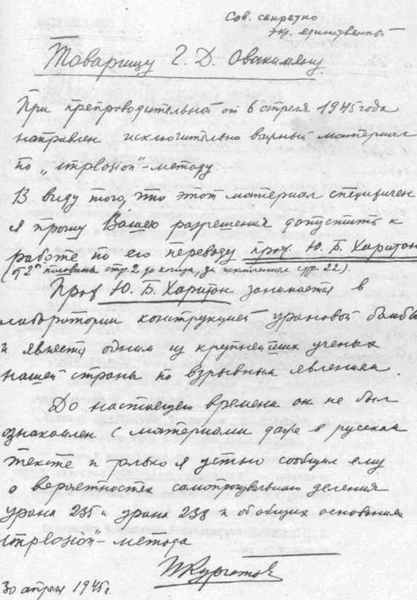 Сов. секретно
экз. единственный
Товарищу Г. Д. Овакимяну.
При препроводительной от 6 апреля 1945 года
направлен исключительно важный материал
по „implosion"-методу
В виду того, что этот материал специфичен
я прошу Вашего разрешения допустить к
работе по его переводу проф. Ю. Б. Харитон
(от 2й половины стр. 2 до конца, за исключением стр. 22).
Проф. Ю. Б. Харитон занимается в
лаборатории конструкцией урановой бомбы
и является одним из крупнейших ученых
нашей страны по взрывным явлениям.
До настоящего времени он не был
ознакомлен с материалами даже в русском
тексте и только я устно сообщил ему
о вероятностях самопроизвольного деления
урана 235 и урана 238 и об общих основаниях
implosion-метода
ИКурчатов
30 апреля 1945г.